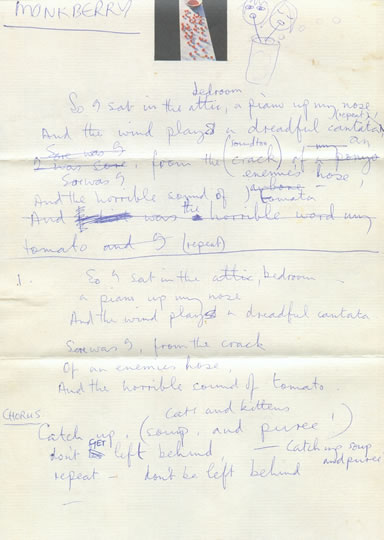 MONKBERRY
bedroom
So I sat in the attic, a piano up my nose (repeat),
And the wind played a dreadful cantata
Sore was I
I was sore, from the (crack) of a
enemies hose,
Sore was I
And the horrible sound of tomato
And was the horrible word my
tomato and I (repeat)
1. So I sat in the attic, bedroom
a piano up my nose
And the wind played a dreadful cantata
Sore was I, from the crack
Of an enemies hose,
And the horrible sound of tomato.
CHORUS
Cats and kittens
Catch up, (soup, and puree,)
don't GET left behind — Catch up soup and puree
repeat — don't be left behind